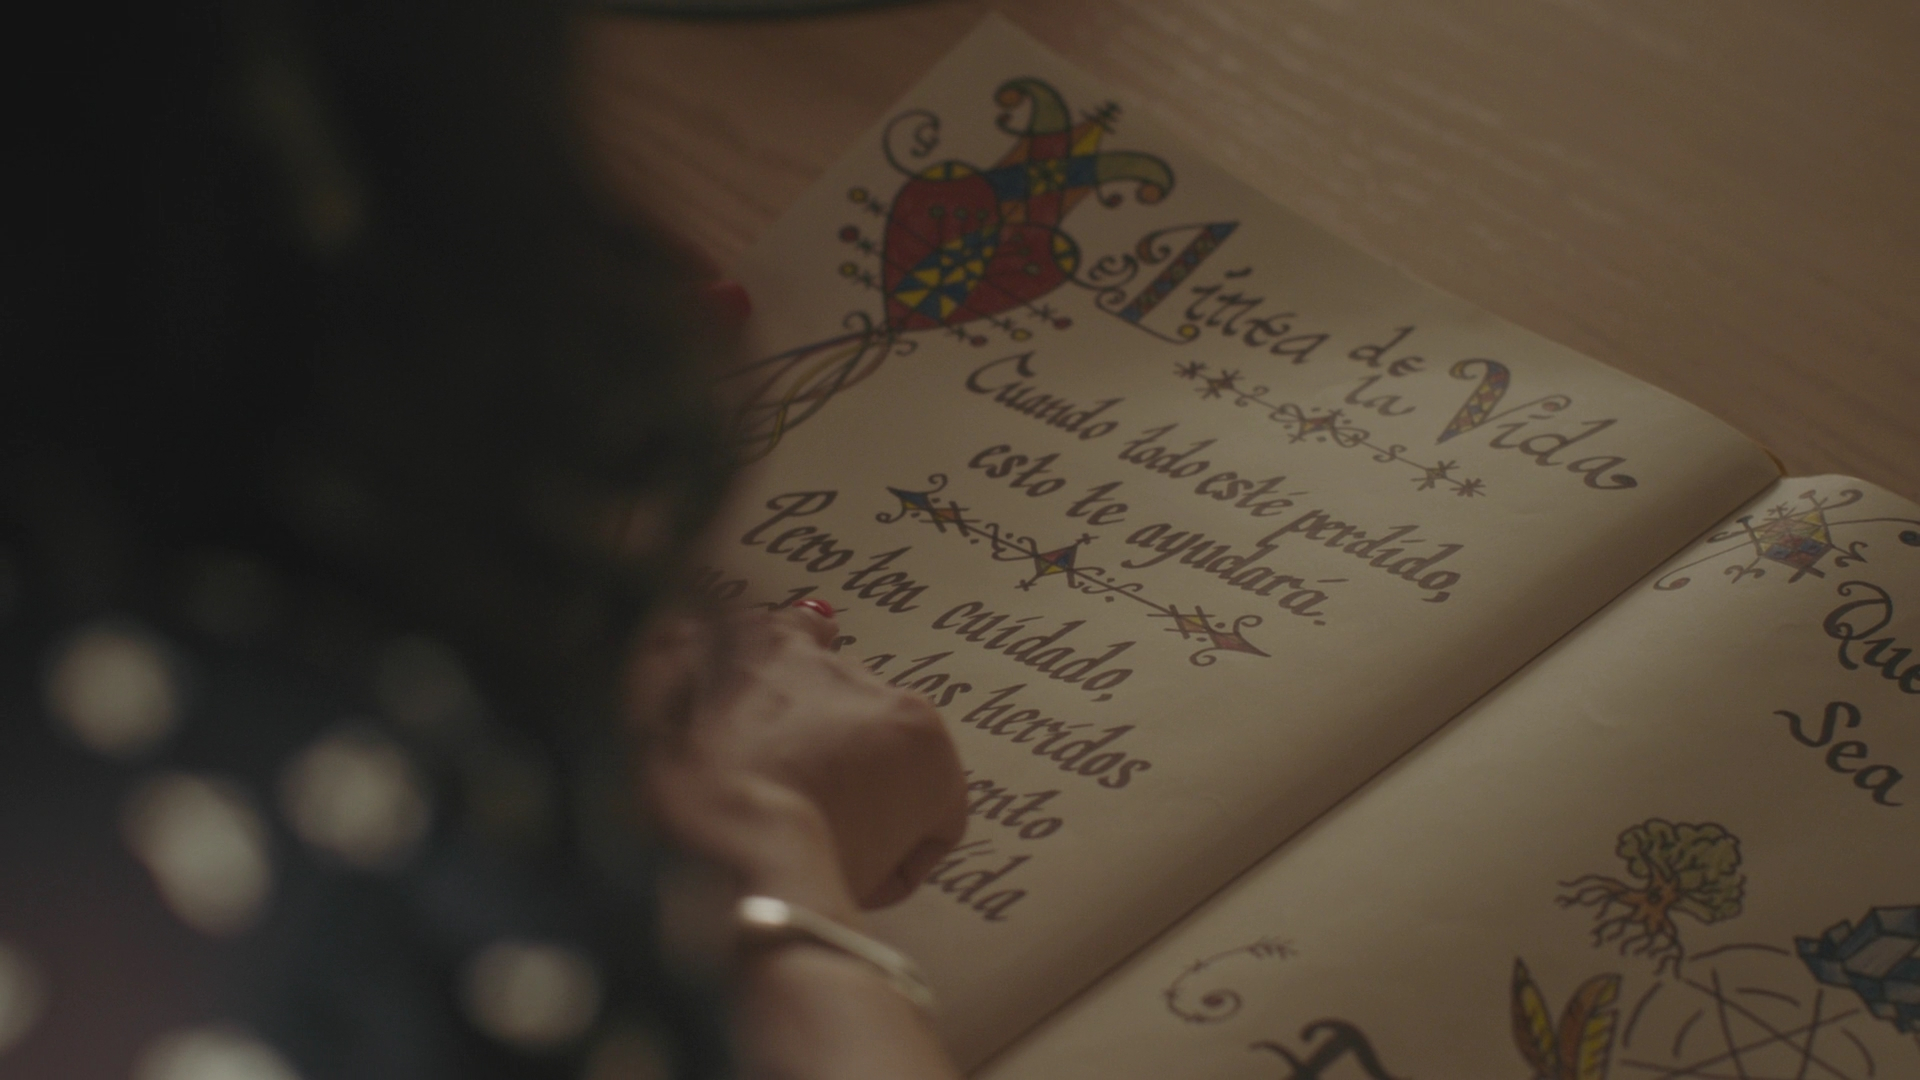 Línea de la Vida
Cuando todo esté perdido,
esto te ayudará.
Pero ten cuidado,
a los heridos
Que
Sea